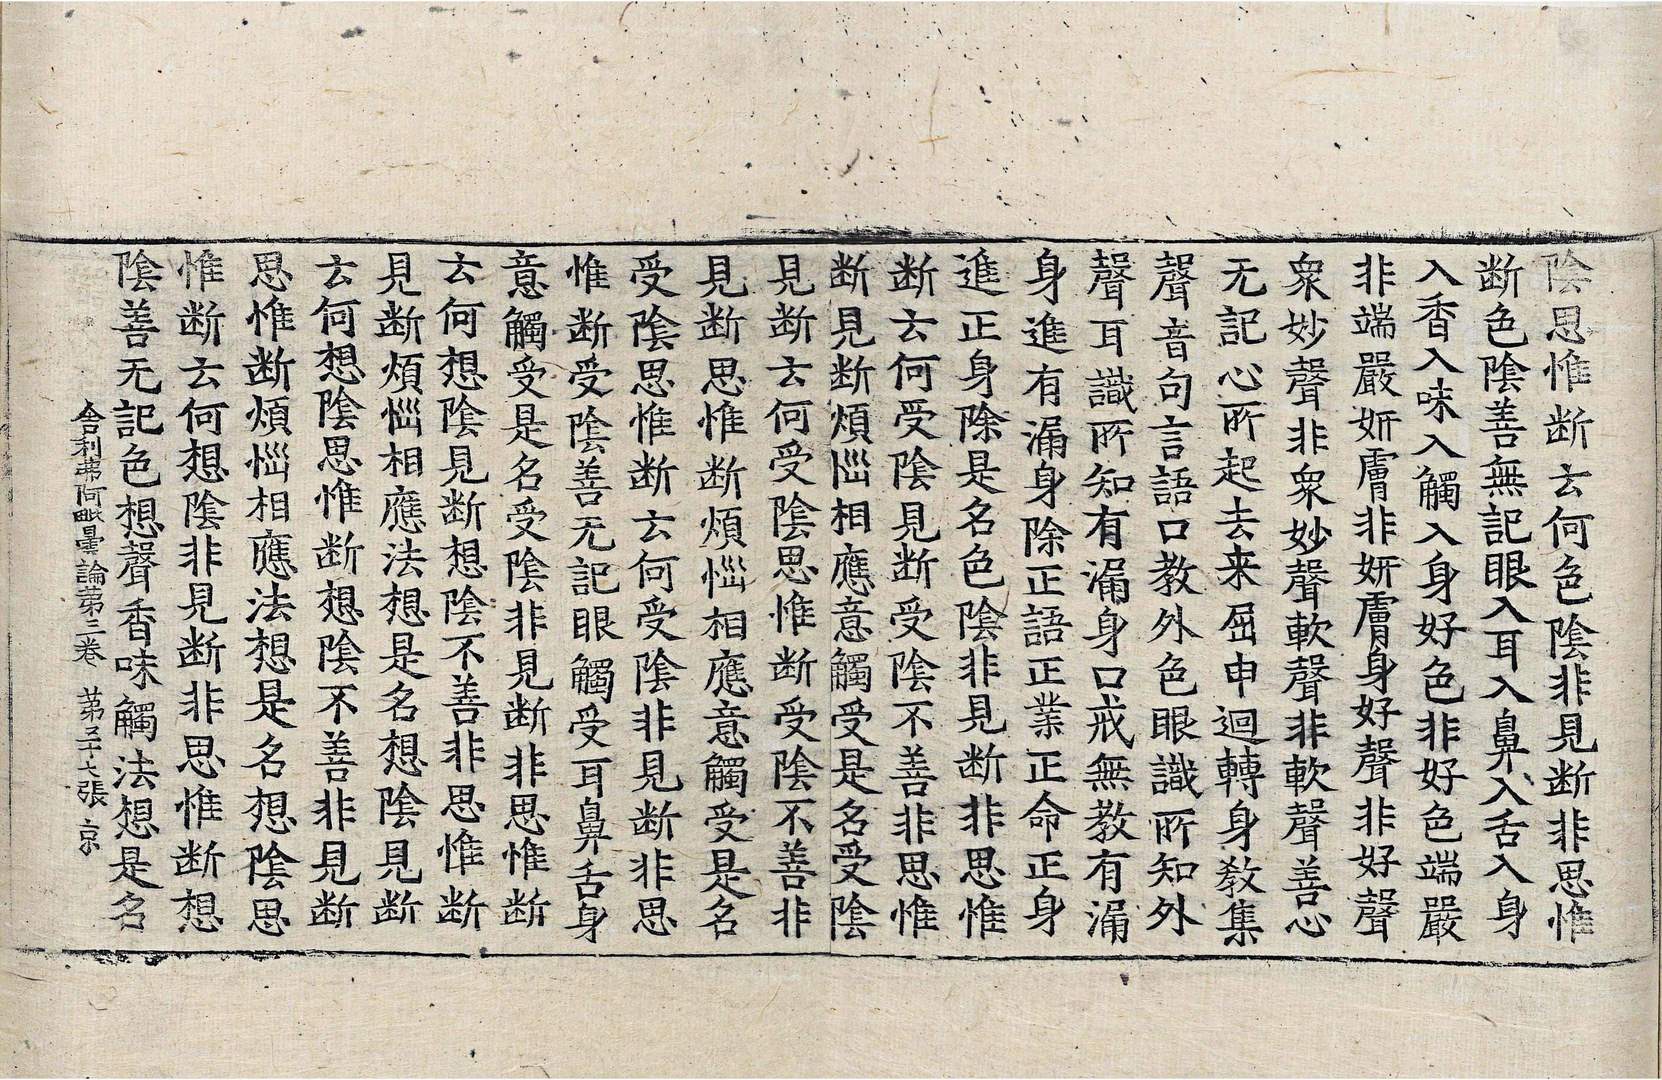 陰思惟断云何色陰非見断非思惟
断色陰善無記眼入耳入鼻入舌入身
入香入味入觸入身好色非好色端嚴
非端嚴妍膚非妍膚身好聲非好聲
衆妙聲非衆妙聲軟聲非軟聲善心
无記心所起去来屈申迴轉身教集
聲音句言語口教外色眼識所知外
聲耳識所知有漏身口戒無教有漏
身進有漏身除正語正業正命正身
進正身除是名色陰非見断非思惟
断云何受陰見断受陰不善非思惟
断見断煩惱相應意觸受是名受陰
見断云何受陰思惟断受陰不善非
見断思惟断煩惱相應意觸受是名
受陰思惟断云何受陰非見断非思
惟断受陰善无記眼觸受耳鼻舌身
意觸受是名受陰非見断非思惟断
云何想陰見断想陰不善非思惟断
見断煩惱相應法想是名想陰見断
云何想陰思惟断想陰不善非見断
思惟断煩惱相應法想是名想陰思
惟断云何想陰非見断非思惟断想
陰善无記色想聲香味觸法想是名
舍利弗阿毗曇論第三卷 第二十七張 京